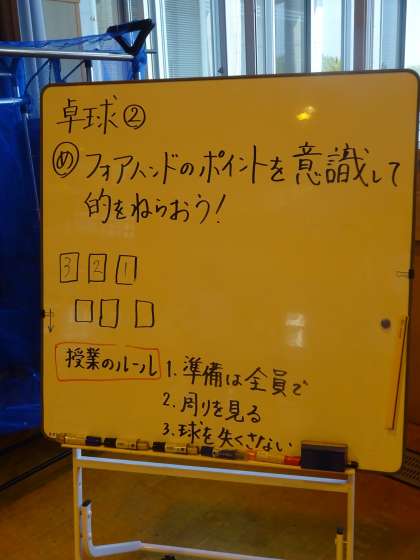 卓球②
め フォアハンドのポイントを意識して
的をねらおう!
3 2 1
授業のルール 1. 準備は全員で
2. 周りを見る
3. 球を失くさない